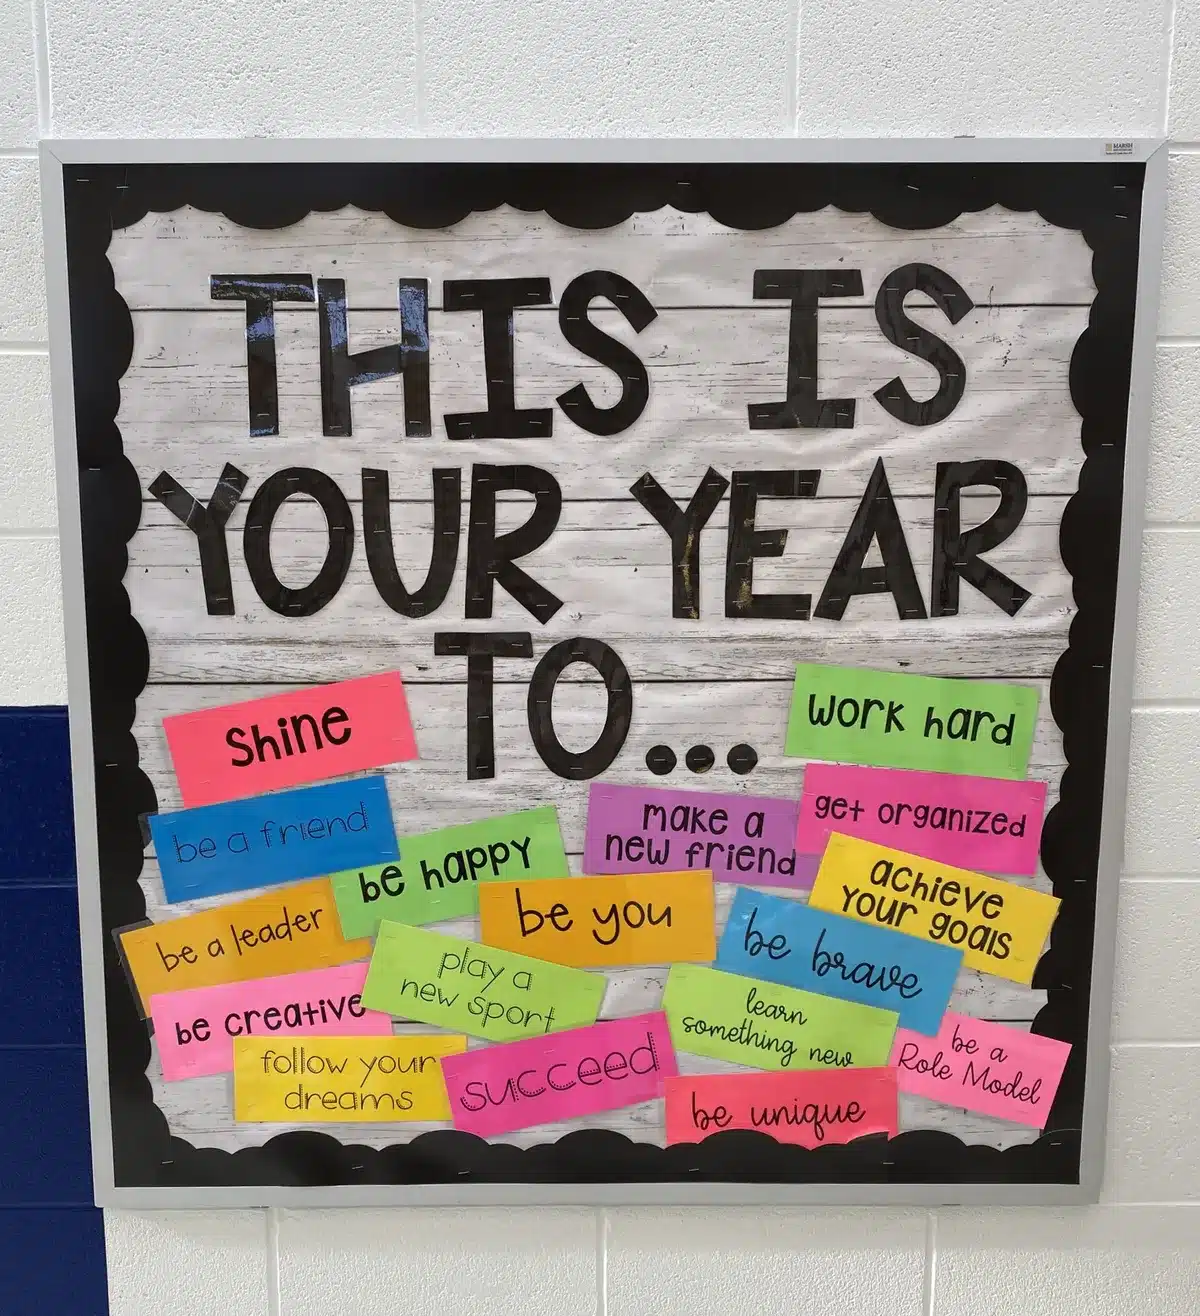 THIS IS
YOUR YEAR
TO...
Shine
work hard
be a friend
make a
new friend
get organized
be happy
achieve
your goals
be a leader
be you
be brave
play a
new sport
be creative
learn
something new
follow your
dreams
succeed
be a
Role Model
be unique
MARSH